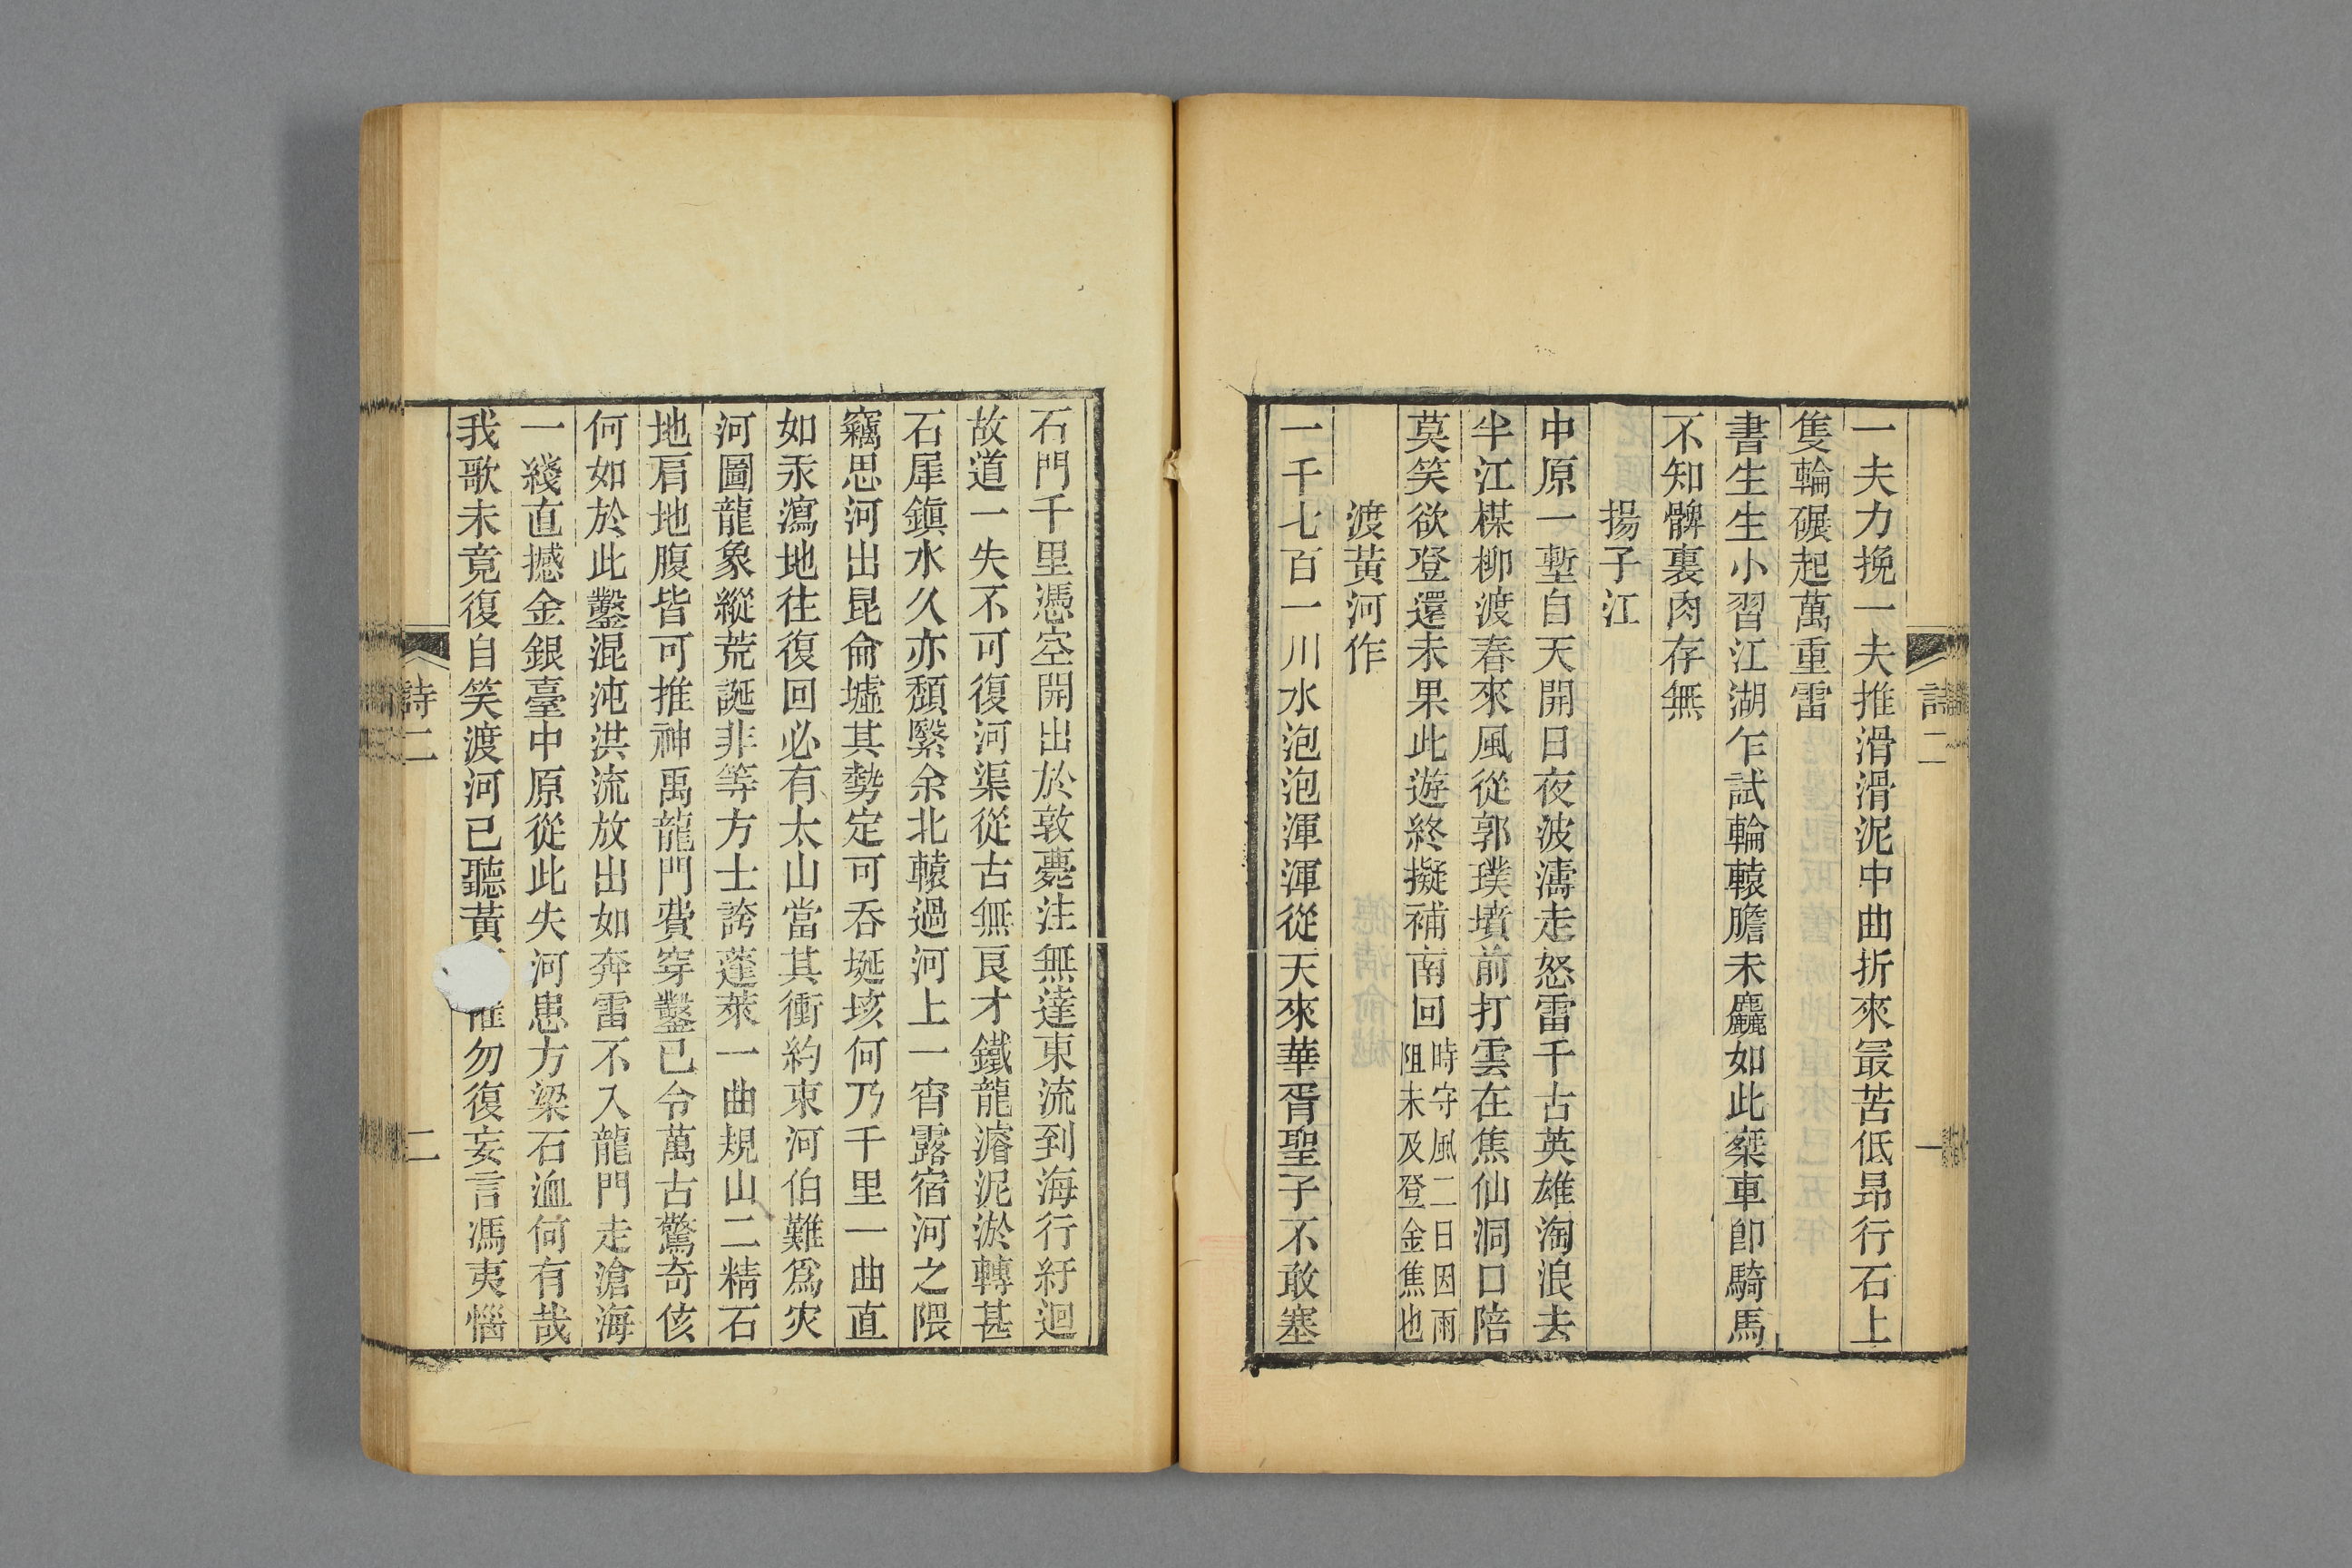 詩二
一
一夫力挽一夫推滑滑泥中曲折來㝡苦低昂行石上
隻輪碾起萬重雷
書生生小習江湖乍試輪轅膽未麤如此椉車卽騎馬
不知髀裏肉存無
揚子江
中原一塹自天開日夜波濤走怒雷千古英雄淘浪去
半江楳柳渡春來風從郭璞墳前打雲在焦仙洞口陪
莫笑欲登還未果此遊終擬補南回時守風二日因雨
阻未及登金焦也
渡黃河作
一千七百一川水泡泡渾渾從天來華胥聖子不敢塞
石門千里憑空開出於敦薨注無達東流到海行紆迴
故道一失不可復河渠從古無良才鐵龍濬泥淤轉甚
石犀鎭水久亦頽緊余北轅過河上一宵露宿河之隈
竊思河出昆侖墟其勢定可吞埏垓何乃千里一曲直
如汞瀉地往復回必有太山當其衝約束河伯難爲灾
河圖龍象縱荒誕非等方士誇蓬萊一曲規山二精石
地肩地腹皆可推神禹龍門費穿鑿已令萬古驚奇侅
何如於此鑿混沌洪流放出如奔雷不入龍門走滄海
一綫直撼金銀臺中原從此失河患方梁石洫何有哉
我歌未竟復自笑渡河已聽黃惟勿復妄言馮夷惱
詩二
二